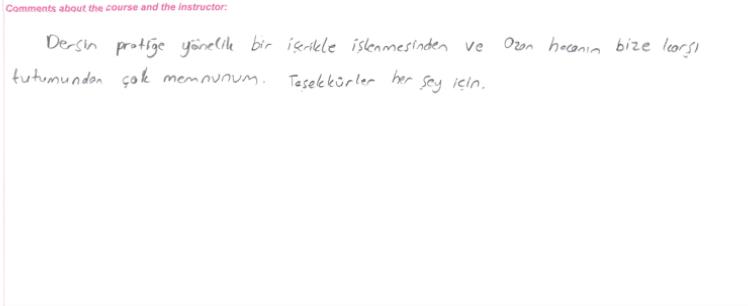 Comments about the course and the instructor:
Dersin pratiğe yönelik bir içerikle işlenmesinden ve Ozan hocanın bize karşı
tutumundan çok memnunum. Teşekkürler her şey için.